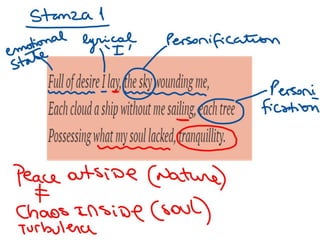 Stanza 1
emotional state
lyrical 'I'
Personification
Full of desire I lay, the sky wounding me,
Each cloud a ship without me sailing, each tree
Possessing what my soul lacked, tranquillity.
Personi
fication
Peace outside (Nature)
≠
Chaos Inside (soul)